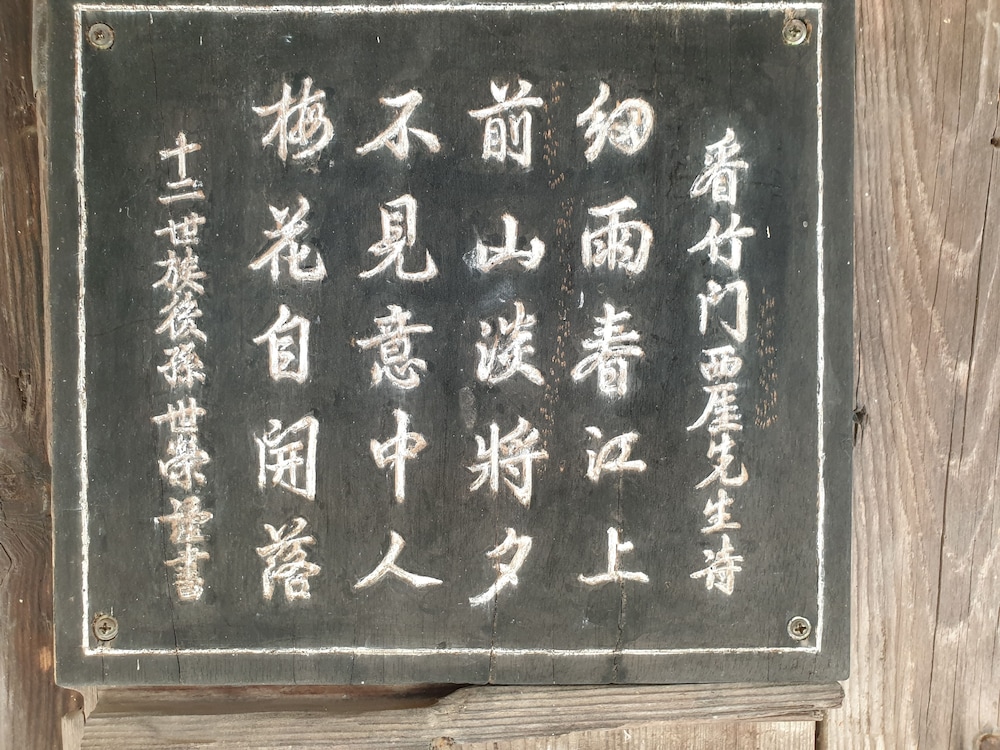 看竹門西厓先生詩
細雨春江上
前山淡將夕
不見意中人
梅花自開落
十二世族後孫世榮謹書